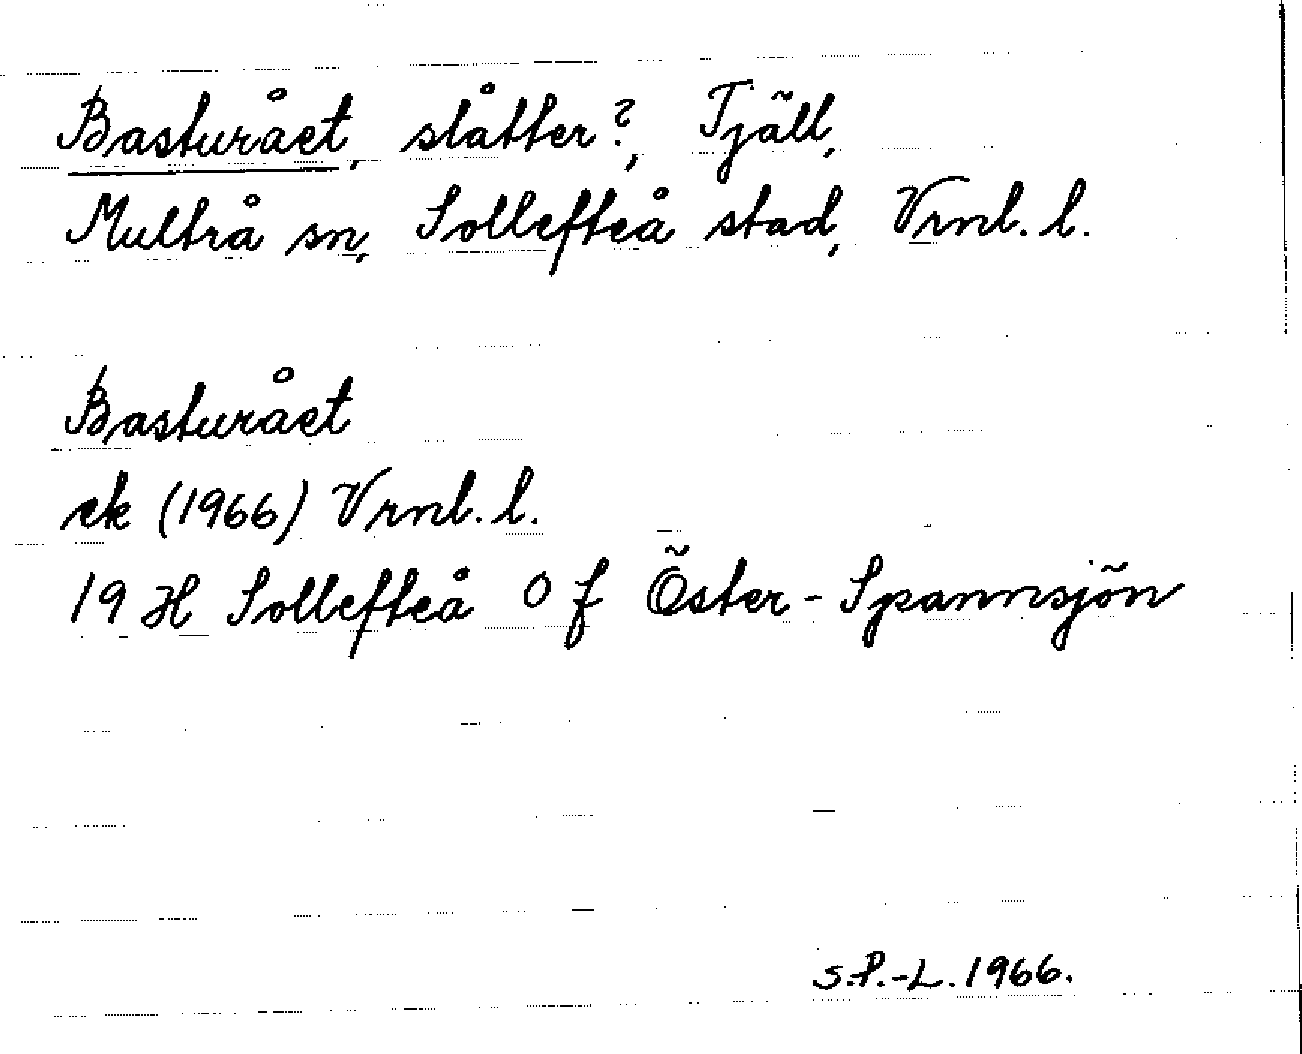 Basturået, slåtter?, Tjäll,
Multrå sn, Sollefteå stad, Vrnl. l.
Basturået
ek (1966) Vrnl. l.
19 H Sollefteå O f Öster-Spannsjön
S.P.-L. 1966.